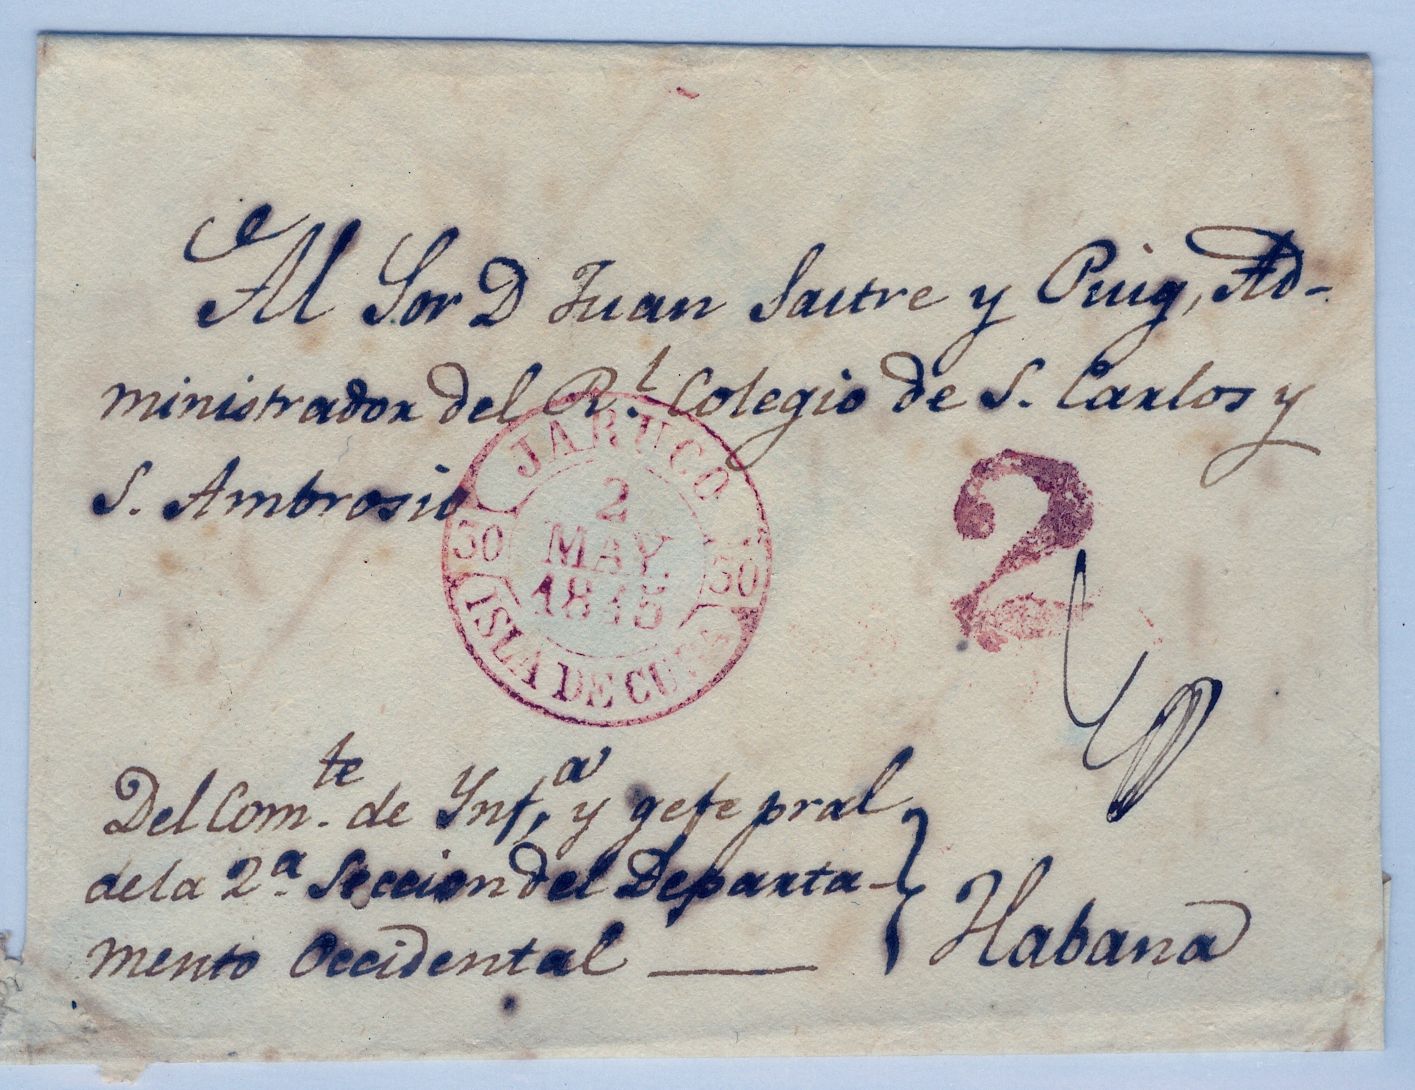 Al Sor D Juan Sastre y Puig, Ad-
ministrador del R.l Colegio de S. Carlos y
S. Ambrosio
JARUCO
2
MAY.
1845
30
30
ISLA DE CUBA
2
Del Com.te de Ynf.a y gefe pral
de la 2.a Seccion del Departa-
mento Occidental
Habana